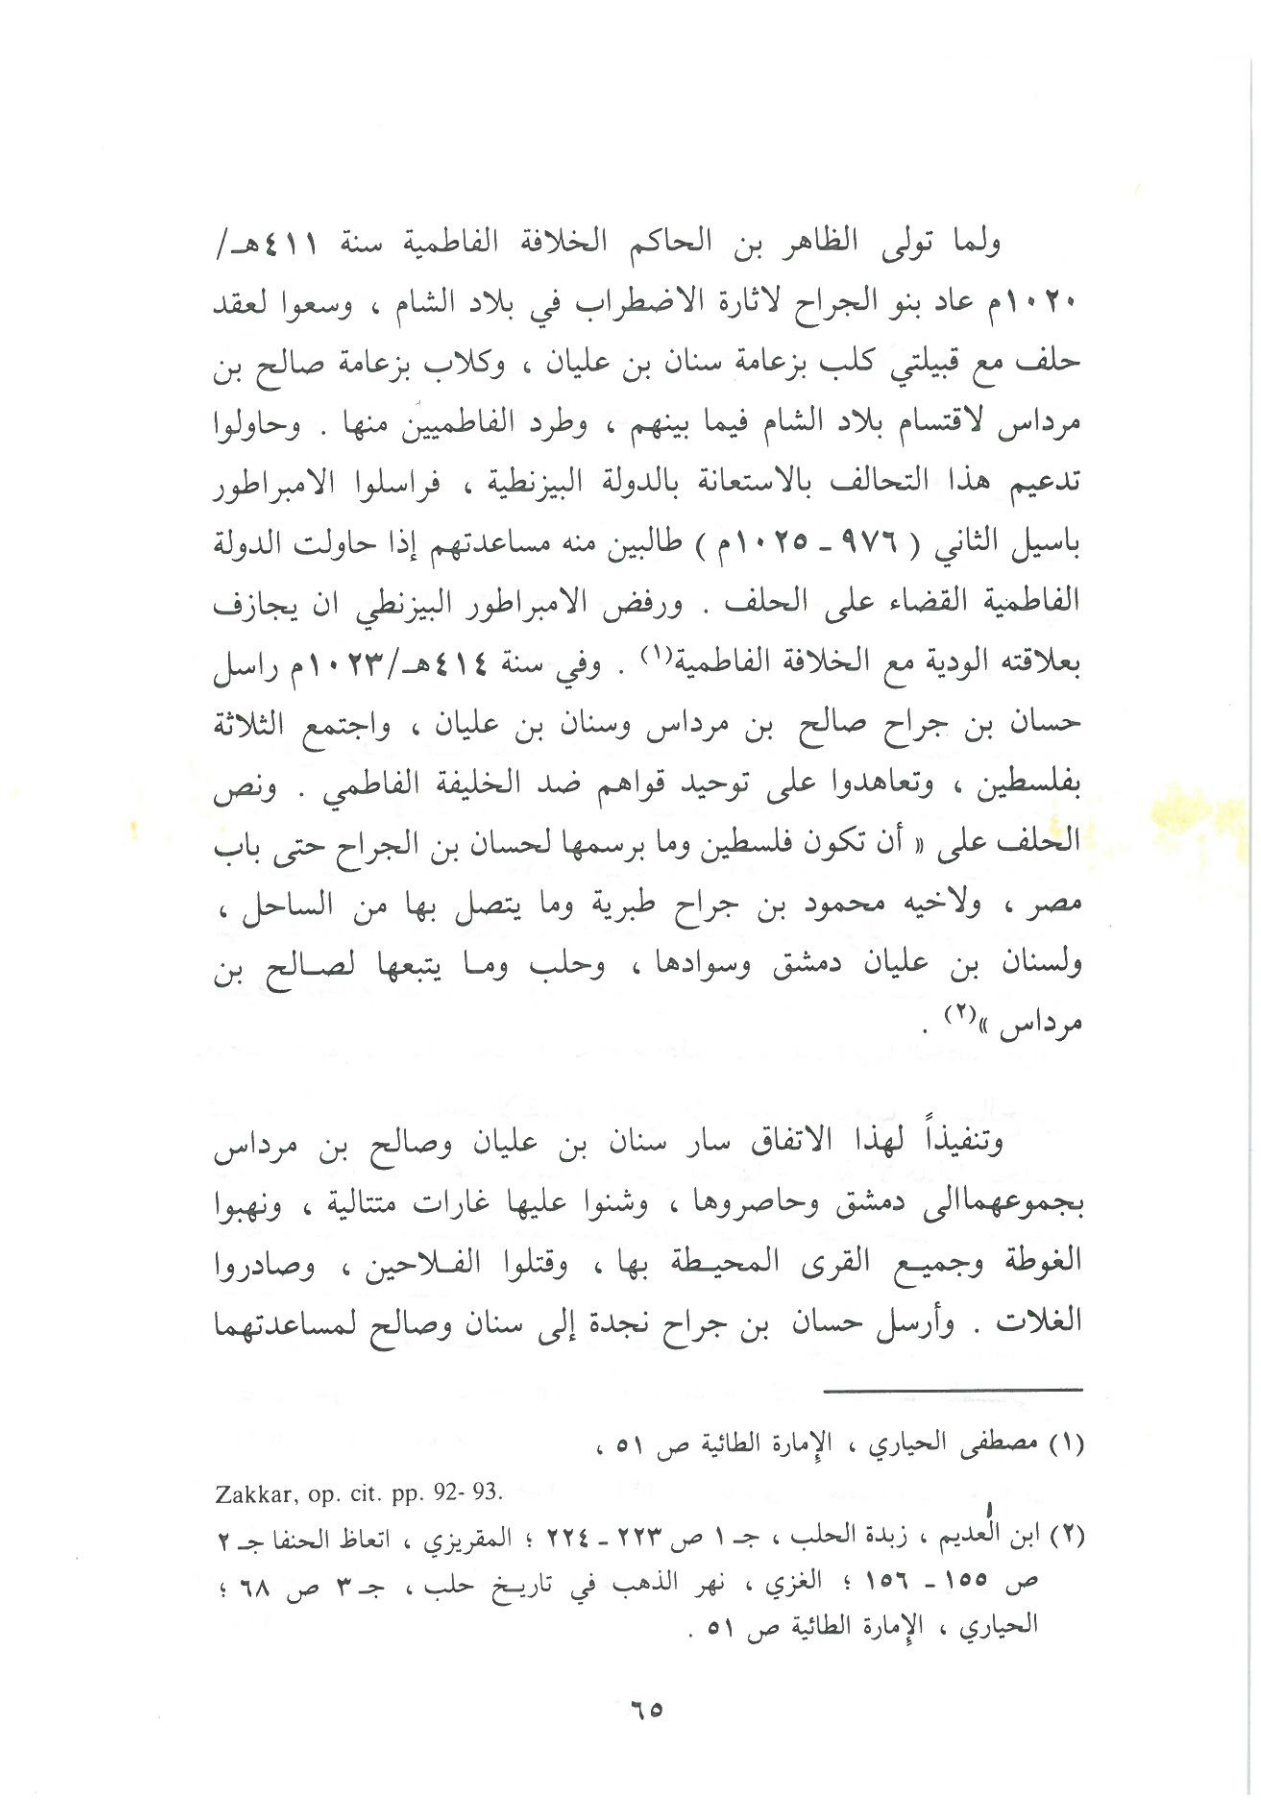 ولما تولى الظاهر بن الحاكم الخلافة الفاطمية سنة ٤١١هـ/
١٠٢٠م عاد بنو الجراح لاثارة الاضطراب في بلاد الشام ، وسعوا لعقد
حلف مع قبيلتي كلب بزعامة سنان بن عليان ، وكلاب بزعامة صالح بن
مرداس لاقتسام بلاد الشام فيما بينهم ، وطرد الفاطميين منها . وحاولوا
تدعيم هذا التحالف بالاستعانة بالدولة البيزنطية ، فراسلوا الامبراطور
باسيل الثاني ( ٩٧٦ ـ ١٠٢٥م ) طالبين منه مساعدتهم إذا حاولت الدولة
الفاطمية القضاء على الحلف . ورفض الامبراطور البيزنطي ان يجازف
بعلاقته الودية مع الخلافة الفاطمية(١) . وفي سنة ٤١٤هـ/١٠٢٣م راسل
حسان بن جراح صالح بن مرداس وسنان بن عليان ، واجتمع الثلاثة
بفلسطين ، وتعاهدوا على توحيد قواهم ضد الخليفة الفاطمي . ونص
الحلف على « أن تكون فلسطين وما برسمها لحسان بن الجراح حتى باب
مصر ، ولاخيه محمود بن جراح طبرية وما يتصل بها من الساحل ،
ولسنان بن عليان دمشق وسوادها ، وحلب وما يتبعها لصالح بن
مرداس »(٢) .
وتنفيذاً لهذا الاتفاق سار سنان بن عليان وصالح بن مرداس
بجموعهماالى دمشق وحاصروها ، وشنوا عليها غارات متتالية ، ونهبوا
الغوطة وجميع القرى المحيطة بها ، وقتلوا الفلاحين ، وصادروا
الغلات . وأرسل حسان بن جراح نجدة إلى سنان وصالح لمساعدتهما
(١) مصطفى الحياري ، الإمارة الطائية ص ٥١ ،
Zakkar, op. cit. pp. 92- 93.
(٢) ابن العديم ، زبدة الحلب ، جـ ١ ص ٢٢٣ ـ ٢٢٤ ؛ المقريزي ، اتعاظ الحنفا جـ ٢
ص ١٥٥ ـ ١٥٦ ؛ الغزي ، نهر الذهب في تاريخ حلب ، جـ ٣ ص ٦٨ ؛
الحياري ، الإمارة الطائية ص ٥١ .
٦٥